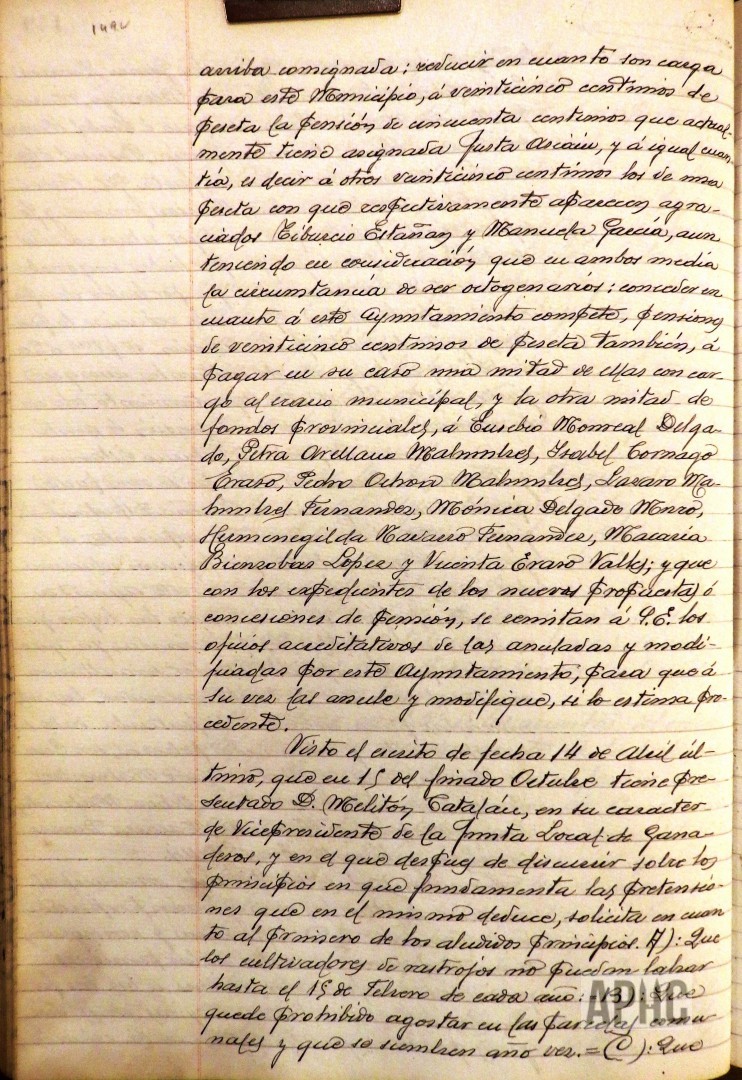 149v
arriba consignada: reducir en cuanto son carga
para este Municipio, á veinticinco centimos de
peseta la pensión de cincuenta centimos que actual-
mente tiene asignada Justa Asiáin, y á igual cuan-
tía, es decir á otros veinticinco centimos los de una
peseta con que respectivamente aparecen agra-
ciados Tiburcio Estañan y Manuela García, aun
teniendo en consideración que en ambos media
la circunstancia de ser octogenarios: conceder en
cuanto á este Ayuntamiento compete, pensiones
de veinticinco centimos de peseta también, á
pagar en su caso una mitad de ellas con car-
go al erario municipal, y la otra mitad de
fondos provinciales, á Eusebio Monreal Delga-
do, Petra Arellano Malumbres, Isabel Cornago
Eraso, Pedro Ochoa Malumbres, Lazaro Ma-
lumbres Fernandez, Mónica Delgado Munro,
Hermenegilda Navarro Fernandez, Macaria
Bienzobas López y Vicenta Eraso Valles; y que
con los expedientes de los nuevas propuestas ó
concesiones de pensión, se remitan á S.E. los
oficios acreditativos de las anuladas y modi-
ficadas por este Ayuntamiento, para que á
su vez las anule y modifique, si lo estima pro-
cedente.
Visto el escrito de fecha 14 de Abril úl-
timo, que en 15 del finado Octubre tiene pre-
sentado D. Melitón Catalán, en su caracter
de Vicepresidente de la Junta Local de Gana-
deros, y en el que despues de discurrir sobre los
principios en que fundamenta las pretensio-
nes que en el mismo deduce, solicita en cuan-
to al primero de los aludidos principios. A): Que
los cultivadores de rastrojos no puedan labrar
hasta el 15 de Febrero de cada año: = B): Que
quede prohibido agostar en las parcelas comu-
nales y que se siembren año vez. = (C): Que
APHC